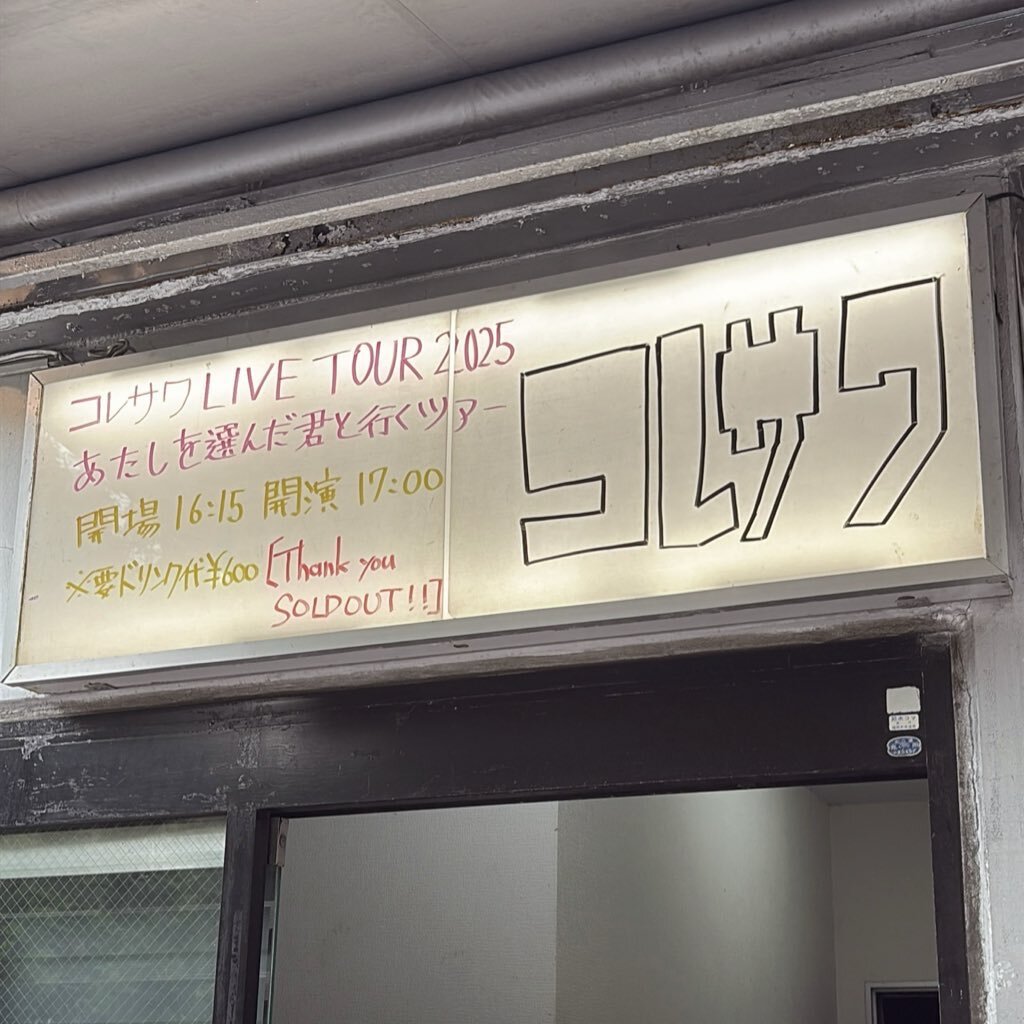 コレサワ LIVE TOUR 2025
あたしを選んだ君と行くツアー
開場 16:15 開演 17:00
※要ドリンク代¥600 [Thank you
SOLDOUT!!]
コレサワ